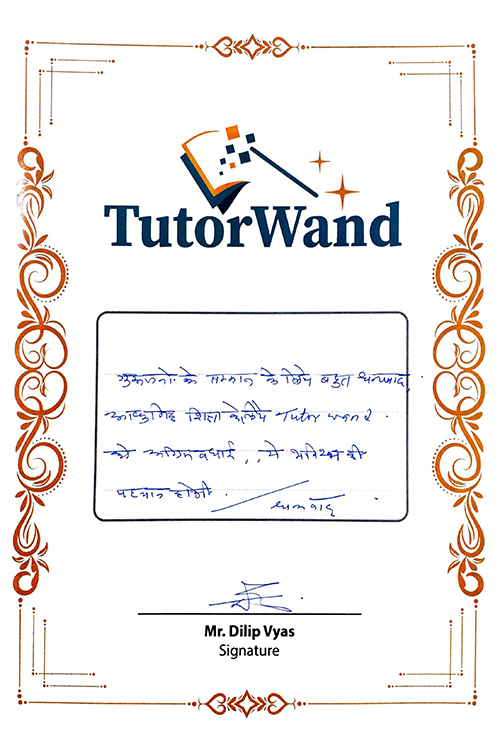 TutorWand
गुरूजनों के सम्मान के लिये बहुत धन्यवाद,
आधुनिक शिक्षा के लिये Tutor wand
को अग्रिम बधाई,, ये भविष्य की
पहचान होगी.
धन्यवाद
Mr. Dilip Vyas
Signature